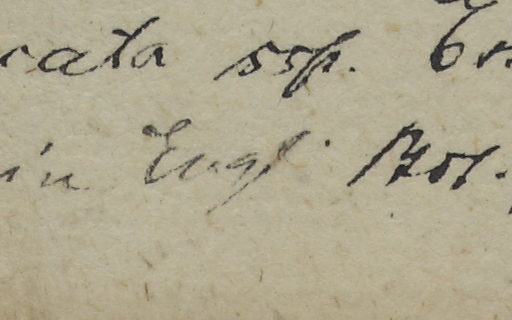 cata ssp. bo
in Engl. Bot.